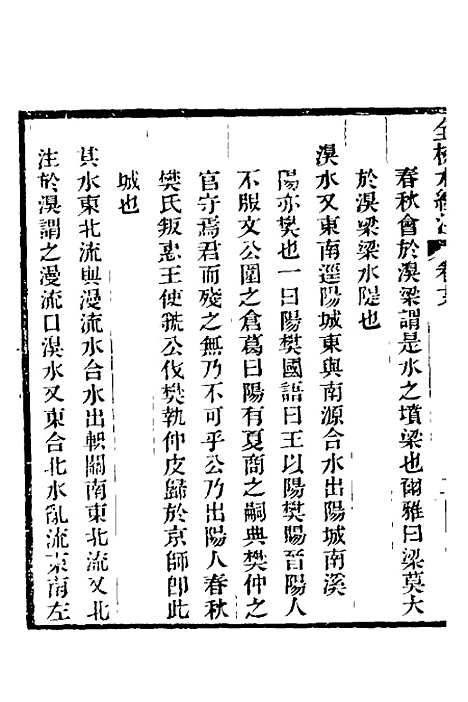 全校水經注 卷
春秋會於湨梁謂是水之墳梁也爾雅曰梁莫大
於湨梁梁水隄也
湨水又東南逕陽城東與南源合水出陽城南溪
陽亦樊也一曰陽樊國語曰王以陽樊賜晉陽人
不服文公圍之倉葛曰陽有夏商之嗣典樊仲之
官守焉君而殘之無乃不可乎公乃出陽人春秋
樊氏叛惠王使虢公伐樊執仲皮歸於京師卽此
城也
其水東北流與漫流水合水出軹關南東北流又北
注於湨謂之漫流口湨水又東合北水亂流東南左